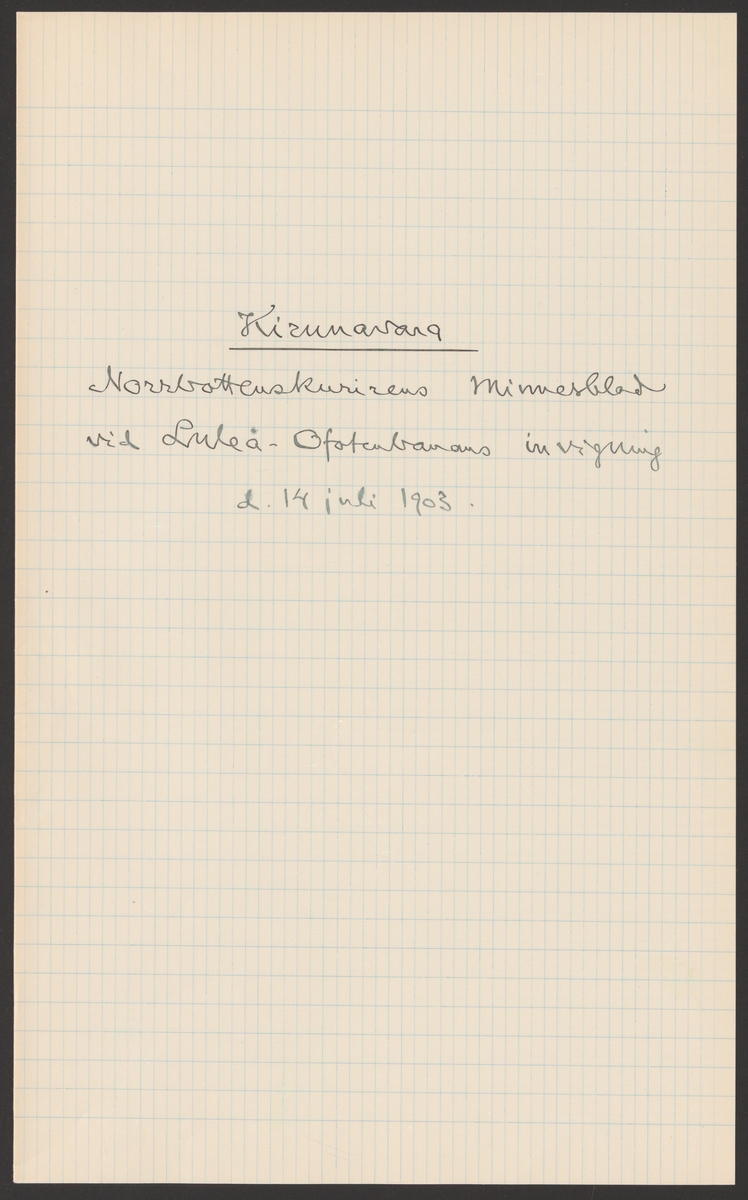 Kirunavara
Norrbottenskurirens Minnesblad
vid Luleå - Ofotenbanans invigning
d. 14 juli 1903.